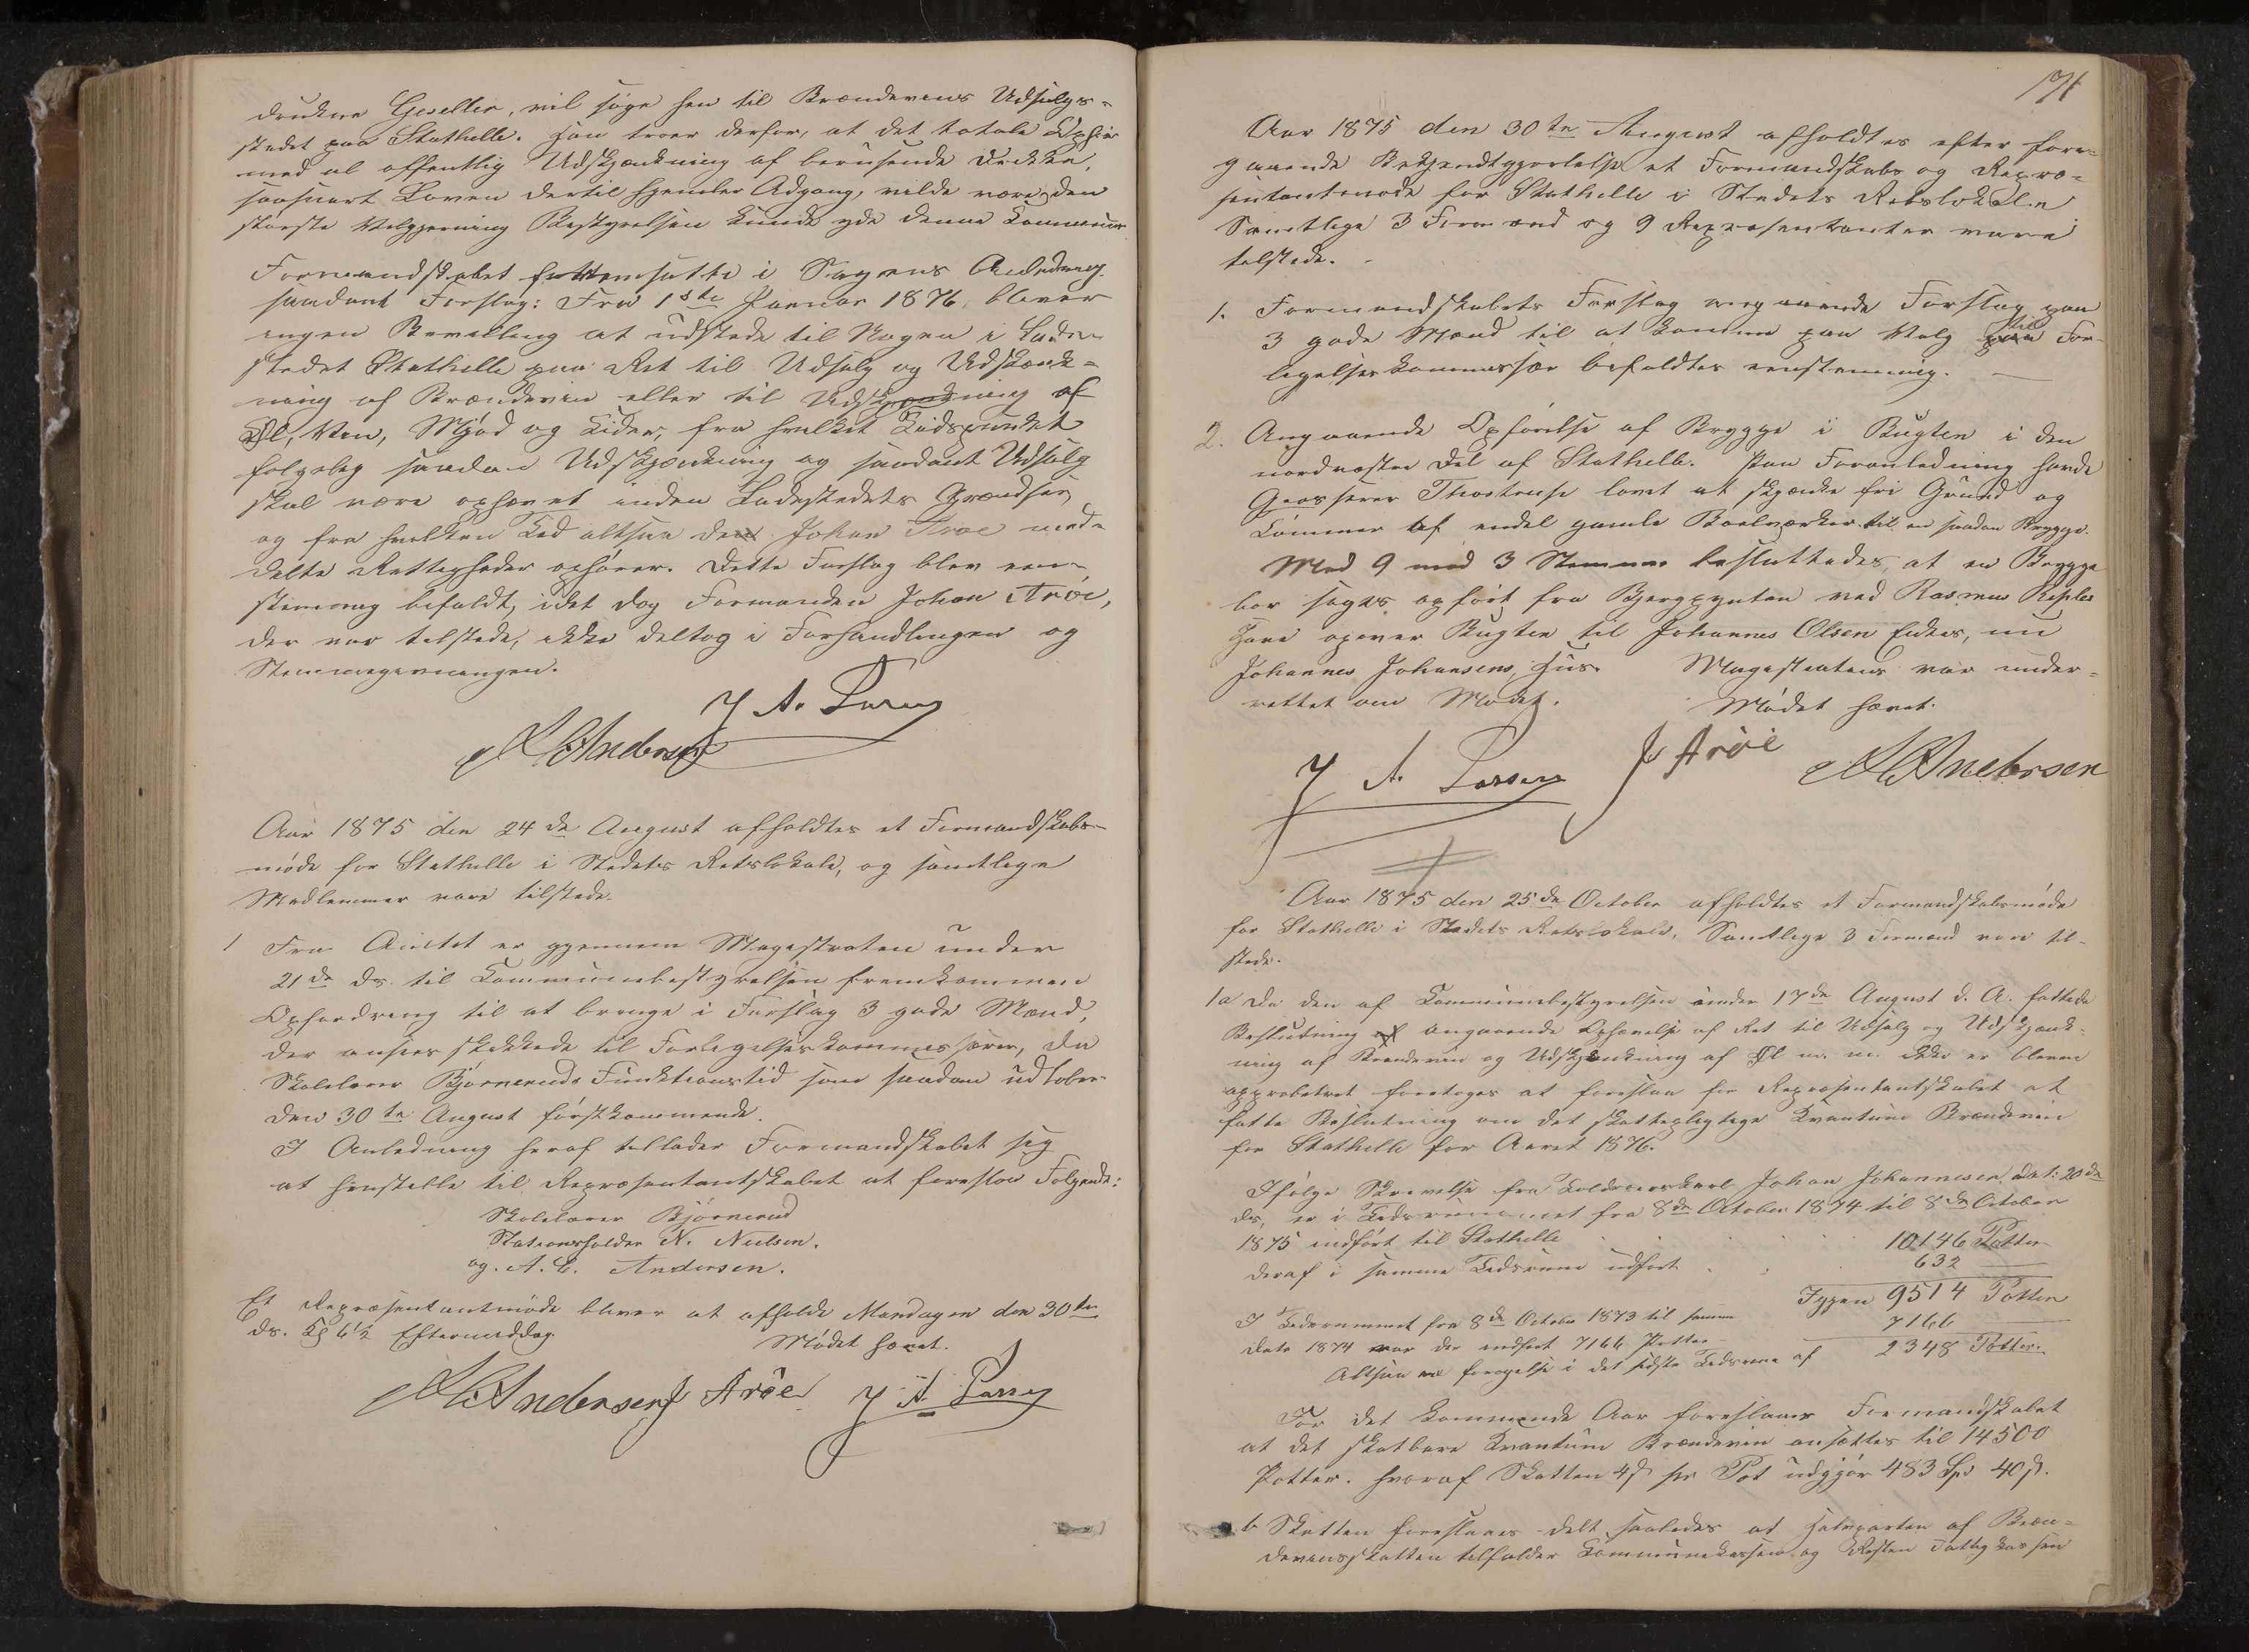 drukne Geseller, vil söge hen til Brændevins Udsalgs-
stedet paa Stathelle. Han troer derfor, at det totale Ophör
med al offentlig Udskjænkning af berusende Drikke,
saasnart Loven dertil hjemler Adgang, vilde være den
störste Velgjerning Bestyrelsen kunde yde denne Kommune.
Formandskabet fattem satte i Sagens Anledning
saadant Forslag: Fra 1ste Januar 1876 bliver
ingen Bevilling at udstede til Nogen i Lade-
stedet Stathelle paa Ret til Udsalg og Udskænk-
ning af Brændevin eller til Udskjænkning af
Øl, Vin, Mjöd og Cider, fra hvilket Tidspunkt
fölgelig saadan Udskjænkning og saadant Udsalg
skal være ophævet inden Ladestedets Grændser,
og fra hvilken Tid altsaa den Johan Aröe med-
delte Rettigheder ophörer. Dette Forslag blev een-
stemmig bifaldt, idet dog Formanden Johan Aröe,
der var tilstede, ikke deltog i Forhandlingen og
Stemmegivningen.
J A. Larsen
A C Andersen
Aar 1875 den 24de August afholdtes et Formandskabs-
möde for Stathelle i Stedets Retslokale, og samtlige
Medlemmer vare tilstede.
1 Fra Amtet er gjennem Magistraten under
21de ds. til Kommunebestyrelsen fremkommen
Opfordring til at bringe i Forslag 3 gode Mænd,
der ansees skikkede til Forligelseskommissærer, da
Skolelærer Bjørneruds Funktionstid som saadan udlöber
den 30te August förstkommende.
I Anledning heraf tillader Formandskabet sig
at henstille til Repræsentantskabet at foreslaa Fölgende:
Skolelærer Bjørnerud
Stationsholder N. Nielsen.
og A. C. Andersen.
Et Repræsentantmöde bliver at afholde Mandagen den 30te
ds. Kl 6½ Eftermiddag.
Mödet hævet.
A C Andersen J Aröe J A. Larsen
171
Aar 1875 den 30te August afholdtes efter fore-
gaaende Bekjendtgjörelse et Formandskabs og Repræ-
sentantmöde for Stathelle i Stedets Retslokale.
Samtlige 3 Formænd og 9 Repræsentanter vare
tilstede.
1. Formandskabets Forslag angaaende Forslag paa
3 gode Mænd til at komme paa Valg paa til For-
ligelseskommissær bifaldtes eenstemmig.
2. Angaaende Opförelse af Brygge i Bugten i den
nordvestre Del af Stathelle. Paa Foranledning havde
Grosserer Thostrup lovet at skjænke fri Grund og
Tömmer af endel gamle Bolværker til en saadan Brygge.
Med 9 mod 3 Stemmer besluttedes, at en Brygge
bör söges opfört fra Bjergpynten ved Rasmus
Have opover Bugten til Johannes Olsen Enkes, nu
Johannes Johansens, Hus. Magistraten var under-
rettet om Mödet. Mödet hævet.
J A. Larsen J Aröe A C Andersen
Aar 1875 den 25de October afholdtes et Formandskabsmöde
for Stathelle i Stedets Retslokale. Samtlige 3 Formænd vare til-
stede.
1a Da den af Kommunebestyrelsen under 17de August d. A. fattede
Beslutning af angaaende Ophævelse af Ret til Udsalg og Udskjænk-
ning af Brændevin og Udskjænkning af Øl m. m. ikke er bleven
approberet foretoges at foreslaa for Repræsentantskabet at
fatte Beslutning om det skattepligtige Kvantum Brændevin
for Stathelle for Aaret 1876.
Ifölge Skrivelse fra Johan Johannesen, dat: 20de
ds, er i Tidsrummet fra 8de October 1874 til 8de October
1875 indfört til Stathelle . . . . 10,146 Potter
deraf i samme Tidsrum udfört . . . 632
Igjen 9514 Potter
I Tidsrummet fra 8de October 1873 til samme
Dato 1874 var der indfört 7166 Potter 7166
Altsaa en Forögelse i det sidste Tidsrum af 2348 Potter.
For det kommende Aar foreslaaer Formandskabet
at det skatbare Kvantum Brændevin ansættes til 14500
Potter. hvoraf Skatten 4ß pr Pot udgjör 483 Spd 40ß.
b Skatten foreslaaes delt saaledes at Halvparten af Bræn-
devinsskatten tilfalder Kommunekassen og Resten Fattigkassen